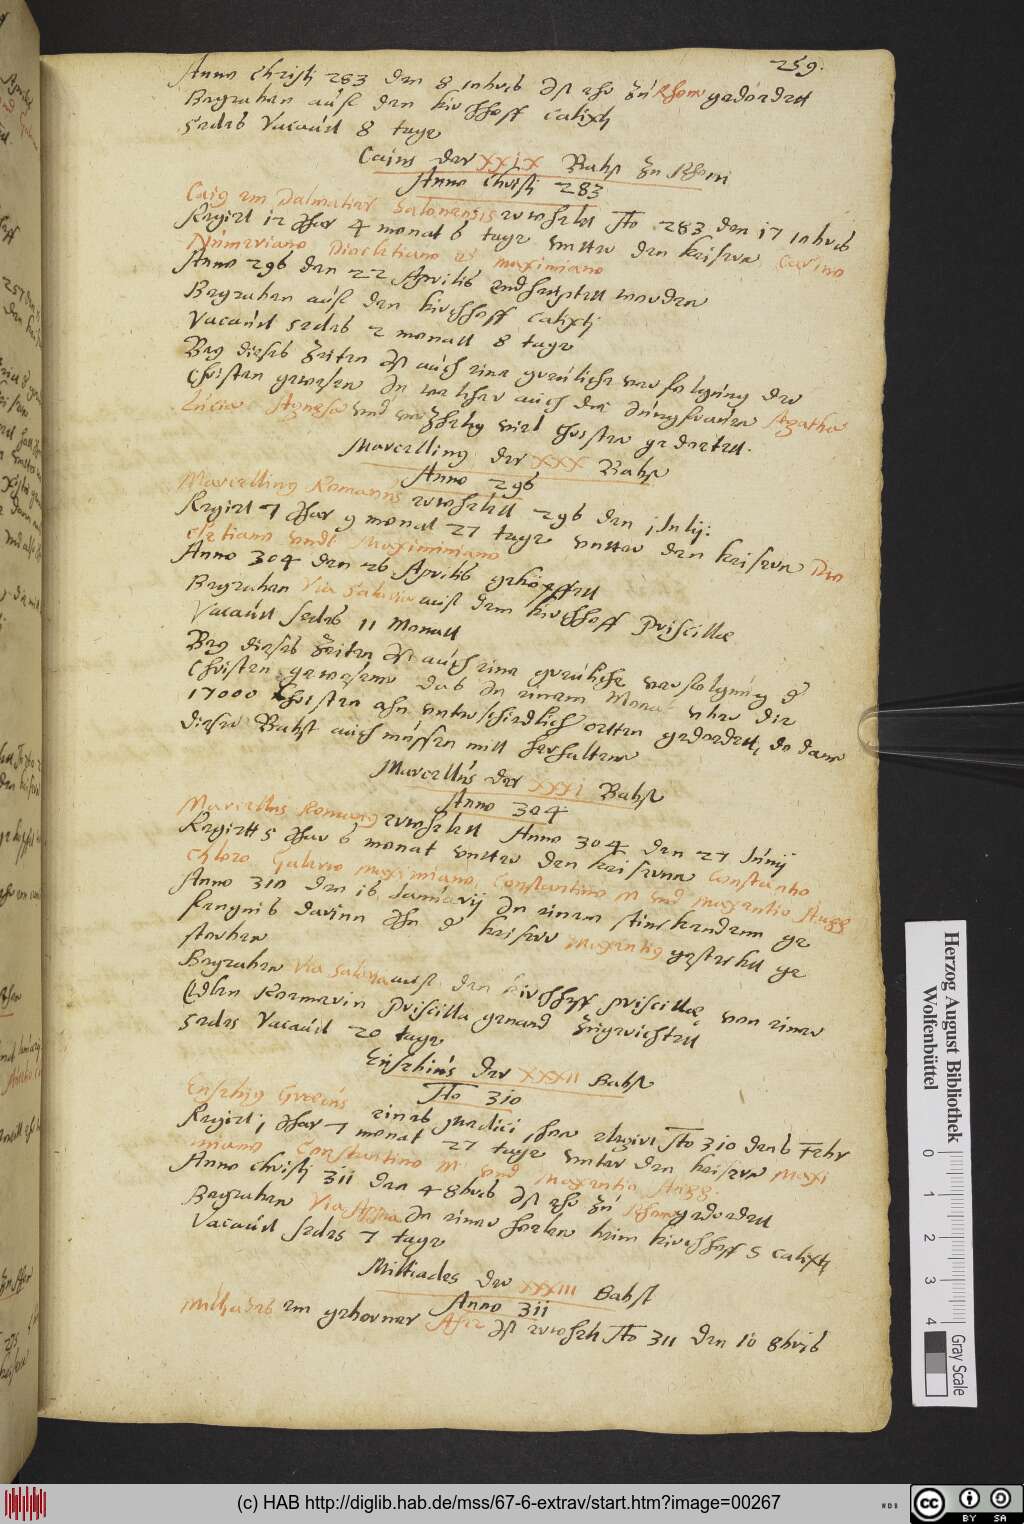 259.
Anno Christi 283 den 8 10bris Ist ehr zu Rhom gedoedett
Begraben auff den kirchhoff Calixti
Sedes Vacauit 8 tage
Caius der XXIX Babst zu Rhom
Anno Christi 283
Caig em Dalmatier Salonensis erwhelet Ao 283 den 17 10bris
Regirt 12 Jhar 4 monat 6 tage vntter den keisern Carino
Numeriano Diocletiano et Maximiano
Anno 296 den 22 Aprilis endheuptett worden
Begraben auff den kirchhoff Calixti
Vacauit sedes 2 monatt 8 tage
Bey dieses Zeiten Ist auch eine greuliche verfolgung der
Christen gewesen In welcher auch die Jungfrauen Agatha
Lucia Agnesa vnd vnzhelig viel Christen gedoetett.
Marcelling der XXX Babst
Anno 296
Marcelling Romanus erwhelett 296 den 1 July:
Regirt 7 Jhar 9 monat 27 tage vntter den keisern Dio
cletiano vndt Maximiniano
Anno 304 den 26 Aprilis gekopffett
Begraben Via Salaria auff dem kirchhoff Priscillae
Vacauit sedes 11 Monatt
Bey dieses Zeiten Ist auch eine greuliche verfolgung d
Christen gewesenn das In einem Monat vber die
17000 Christen ahn vnterschiedlich ortten gedoedett, do dann
dieser Babst auch mussen mitt herhaltenn
Marcellus der XXXI Babst
Anno 304
Marcellus Romang erwhelett Anno 304 den 27 Junij
Regirtt 5 Jhar 6 monat vntter den keisernn Constantio
Chloro Galerio Maximiano, Constantino M vnd Maxentio Augg
Anno 310 den 16 Januarij In einem stinckendenn ge
fengnis darinn Ihn d keiserr Maxentig gestecktt ge
storben
Begraben Via Salaria auff den kirchhoff Priscillae von einer
Edlen Roemerin Priscilla genand zugerichtett
Sedes Vacauit 20 tage
Eusebius der XXXII Babst
Ao 310
Eusebig Grecus eines medici shon elegirt Ao 310 den 6 Febr
Regirt 1 Jhar 7 monat 27 tage vnter den keisern Maxi
miano Constantino M vnd Maxentio Augg.
Anno Christi 311 den 4 8bris Ist ehr zu Rhom gedoedett
Begraben Via Appia In einer hoelen beim kirchhoff S Calixti
Vacauit sedes 7 tage
Miltiades der XXXIII Babst
Anno 311
Miltiades em geborner Afer Ist erwhelt Ao 311 den 10 8bris
Herzog August Bibliothek
Wolfenbüttel
0 1 2 3 4
Gray Scale
(c) HAB http://diglib.hab.de/mss/67-6-extrav/start.htm?image=00267
WDB
cc BY SA